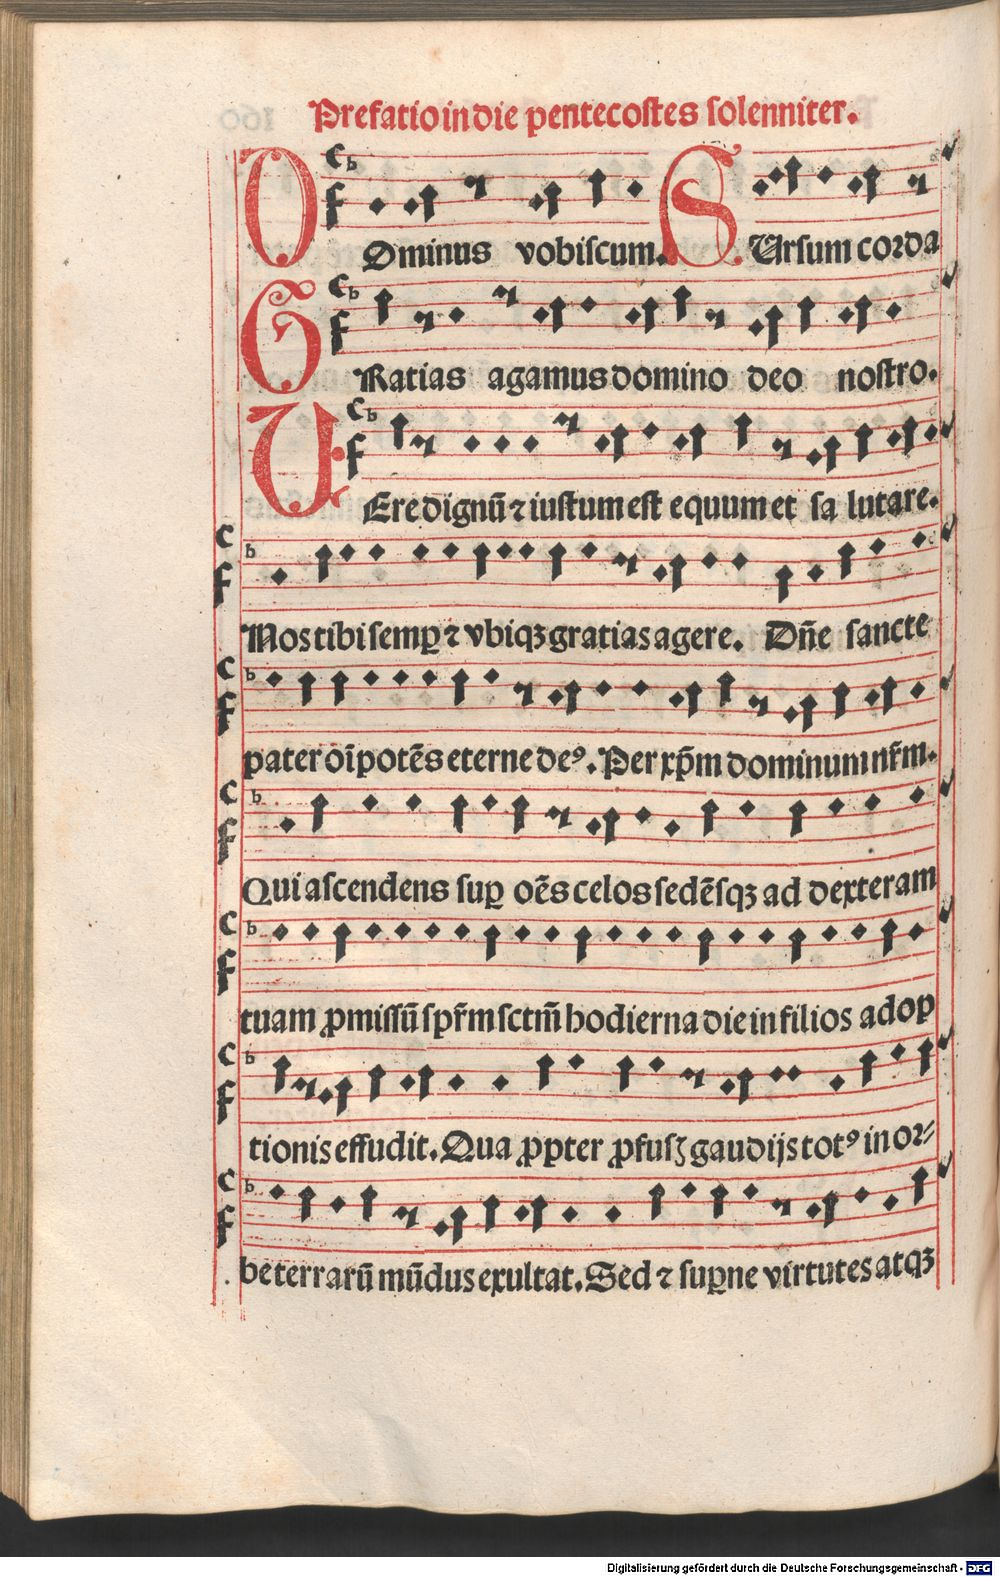 Prefatio in die pentecostes solenniter.
DOminus vobiscum. SUrsum corda
GRatias agamus domino deo nostro.
VEre dignū ⁊ iustum est equum et sa lutare.
Nos tibi semꝑ ⁊ vbiqꝫ gratias agere. Dñe sancte
pater oīpotēs eterne deꝰ. Per xp̄m dominum nr̄m.
Qui ascendens suꝑ oēs celos sedēsqꝫ ad dexteram
tuam ꝓmissū spr̄m sctm̄ hodierna die in filios adop
tionis effudit. Qua ꝓpter ꝓfusꝫ gaudijs totꝰ in or⸗
be terrarū mūdus exultat. Sed ⁊ suꝑne virtutes atqꝫ
Digitalisierung gefördert durch die Deutsche Forschungsgemeinschaft - DFG